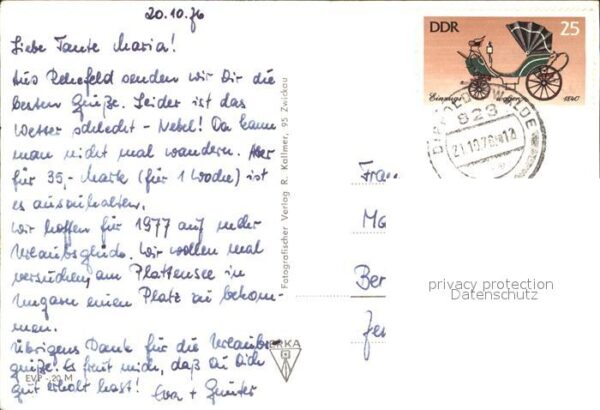 20.10.76
Liebe Tante Maria!
Aus Rehefeld senden wir Dir die
besten Grüße. Leider ist das
Wetter schlecht - Nebel! Da kann
man nicht mal wandern. Aber
für 35,- Mark (für 1 Woche) ist
es auszuhalten.
Wir hoffen für 1977 auf mehr
Urlaubsglück. Wir wollen mal
versuchen, am Plattensee in
Ungarn einen Platz zu bekom-
men.
Übrigens Dank für die Urlaubs-
grüße! Es freut mich, daß Du Dich
gut erholt hast! Eva + Günter
EVP -,20 M
ERKA
Fotografischer Verlag R. Kallmer, 95 Zwickau
DDR 25
1840
823
21.10.76
Frau
Ma
Ber
privacy protection
Datenschutz